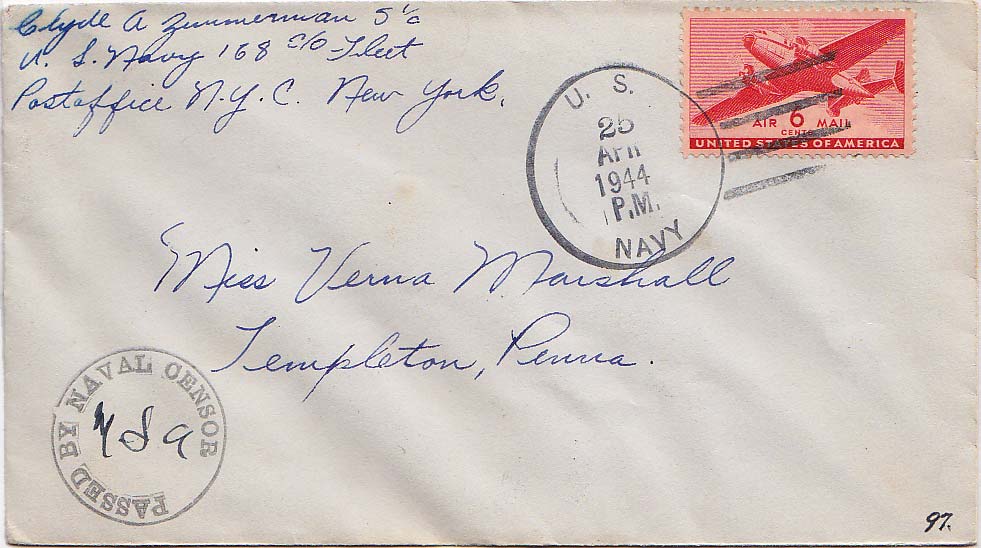 Clyde A Zimmerman S 1/c
U. S. Navy 168 c/o Fleet
Postoffice N.Y.C. New York.
U. S.
25
Apr
1944
P.M.
NAVY
AIR 6 MAIL
CENTS
UNITED STATES OF AMERICA
Miss Verna Marshall
Templeton, Penna.
PASSED BY NAVAL CENSOR
97.